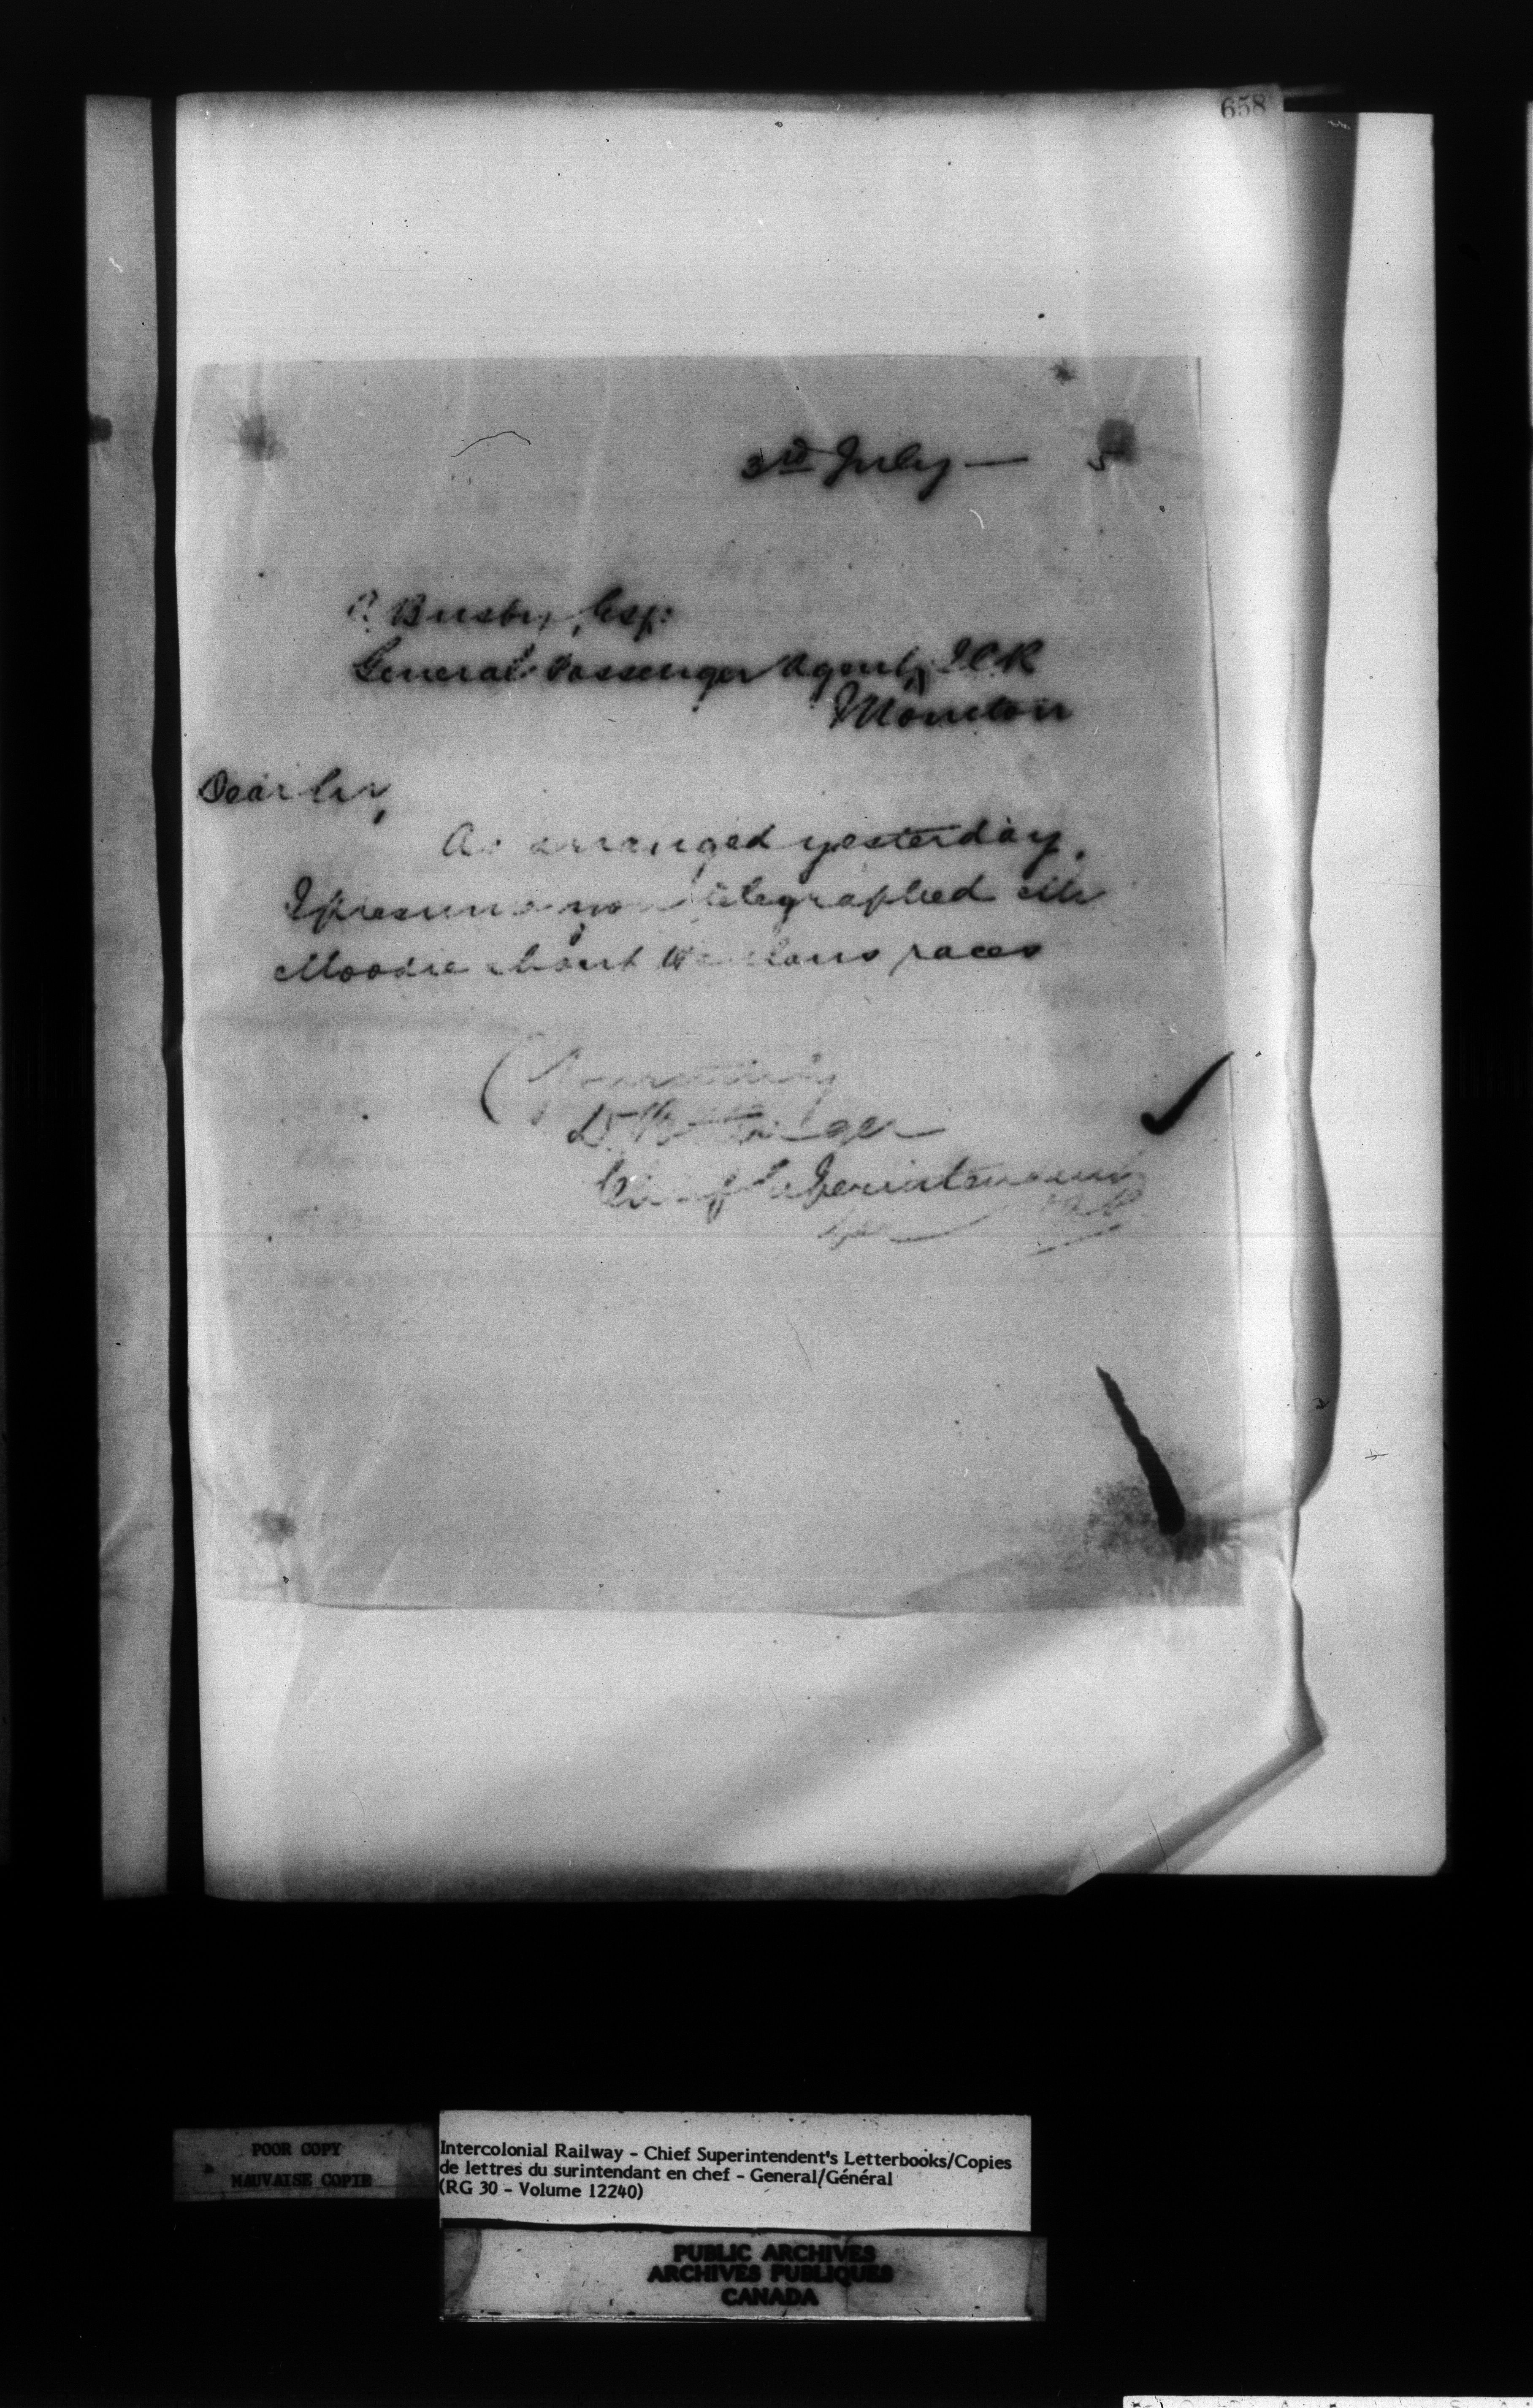 658
3rd July — 5
Busby, Esq:
General Passenger Agent, ICR
Moncton
Dear Sir,
As arranged yesterday,
I presume you telegraphed Mr
Moodie about races
(Yours truly
D. Pottinger
Chief Superintendent
POOR COPY
MAUVAISE COPIE
Intercolonial Railway - Chief Superintendent's Letterbooks/Copies
de lettres du surintendant en chef - General/Général
(RG 30 - Volume 12240)
PUBLIC ARCHIVES
ARCHIVES PUBLIQUES
CANADA